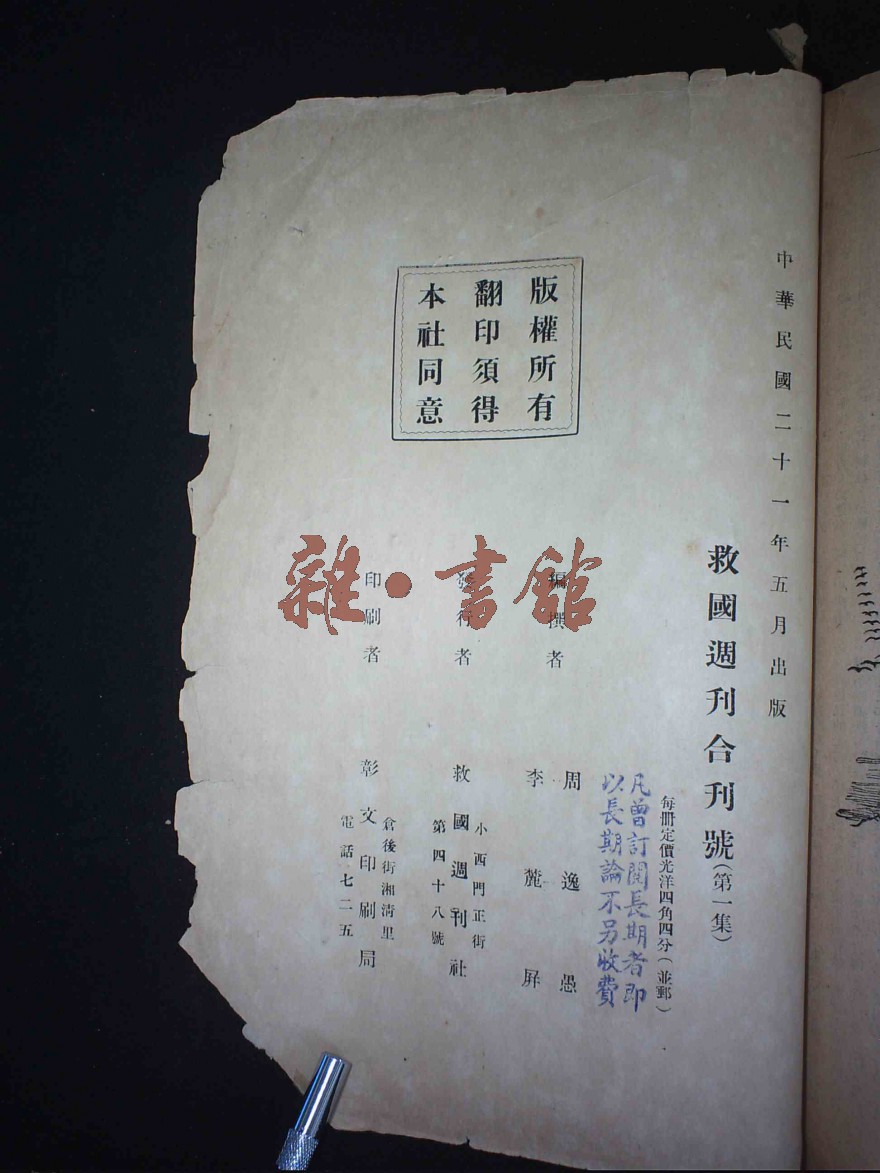 中華民國二十一年五月出版
救國週刊合刊號（第一集）
每冊定價光洋四角四分（並郵）
凡曾訂閱長期者即
以長期論不另收費
版權所有
翻印須得
本社同意
編撰者
周逸愚
李麓屏
發行者
小西門正街
救國週刊社
第四十八號
印刷者
倉後街湘清里
彰文印刷局
電話七二五
雜·書館